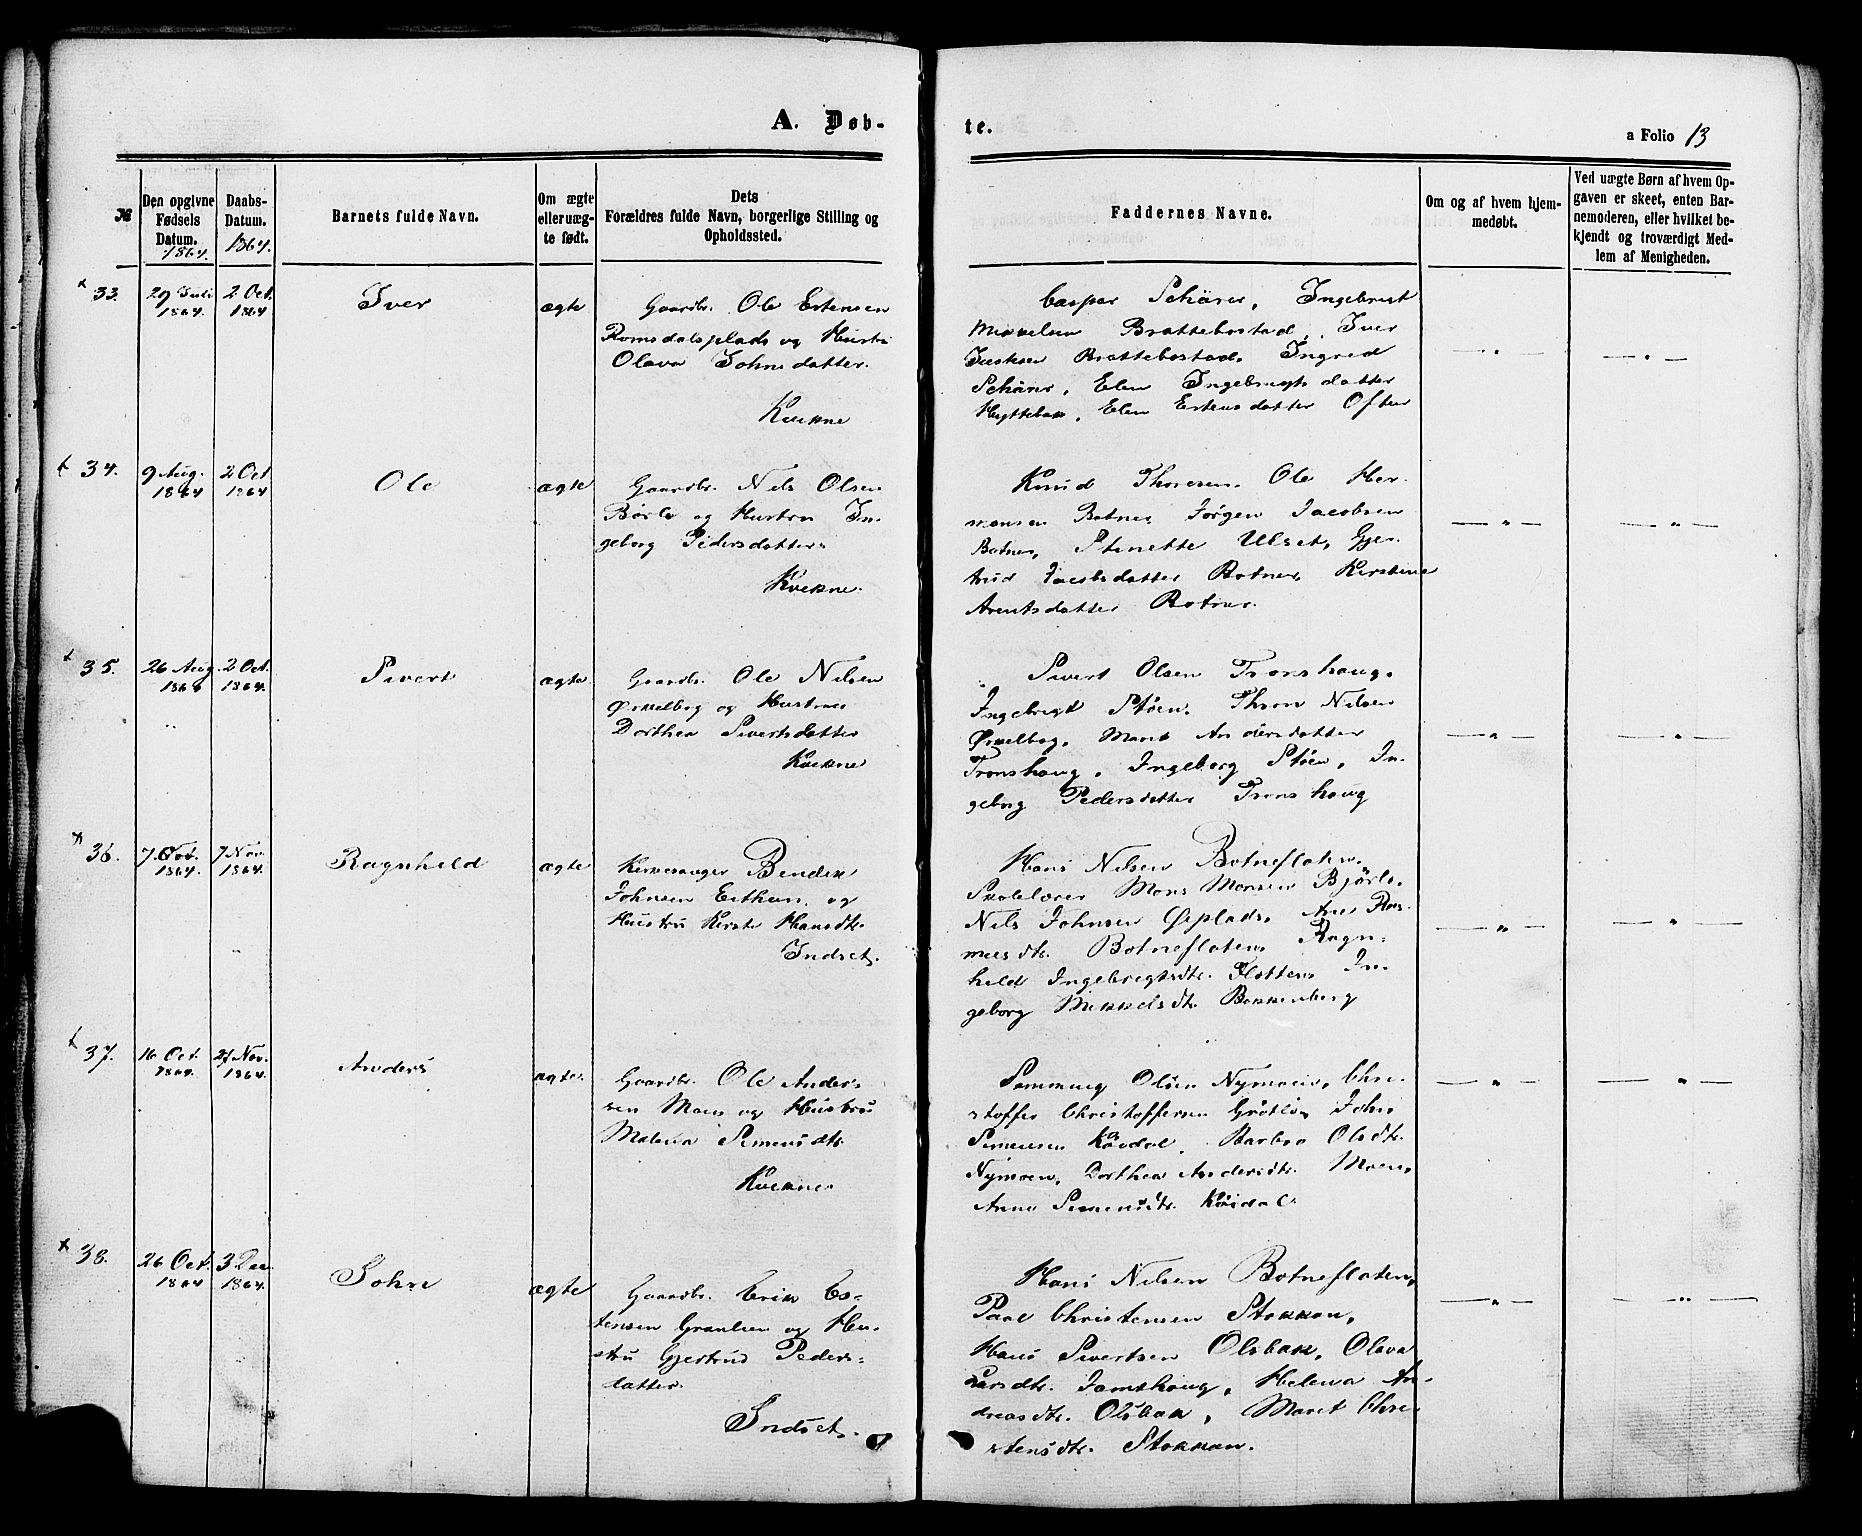 A. Døb-
te.
a Folio 13
№
Den opgivne Fødsels Datum. 1864.
Daabs-Datum. 1864.
Barnets fulde Navn.
Om ægte eller uæg-te født.
Dets
Forældres fulde Navn, borgerlige Stilling og
Opholdssted.
Faddernes Navne.
Om og af hvem hjem-
medøbt.
Ved uægte Børn af hvem Op-
gaven er skeet, enten Bar-
nemoderen, eller hvilket be-
kjendt og troværdigt Med-
lem af Menigheden.
33. 29 Juli 1864. 2 Oct. 1864 Iver ægte
Gaardbr. Ole Estensen
Romsdalsplads og Hustru
Olava Johnsdatter.
Kvikne
Caspar Schärer, Ingebrigt
Brattebostad, Iver
Brattebostad, Ingrid
Schärer, Elen Ingebrigtsdatter
Hyttebak, Elen Estensdatter
34. 9 Aug. 1864 2 Oct 1864 Ole ægte
Gaardbr. Nils Olsen
og Hustru In-
geborg Pedersdatter
Kvikne.
Knud Thoresen. Ole Her-
mansen Botner, Jørgen Jacobsen
Botner, Stinette Ulset, Gjer-
trud Jacobsdatter Botner, Kirstine
Arentsdatter Botner.
35. 26 Aug. 1864 2 Oct. 1864. Sivert ægte
Gaardbr. Ole Nilsen
Ørkelbog og Hustru
Dorthea Sivertsdatter
Kvikne
Sivert Olsen Tronshaug.
Ingebrigt Støen. Thron Nilsen
Ørkelbog, Marit Andersdatter
Tronshaug, Ingeborg Støen, In-
geborg Pedersdatter Tronshaug
36. 7. Oct. 1864. 7 Nov. 1864. Ragnhild ægte
Kirkesanger Bendik
Johnsen Esthun, og
Hustru Kirsti Hansdtr.
Indset.
Hans Nilsen Botnefloten.
Skolelærer Mons Monsen
Nils Johnsen Øiplads. Ane Ras-
musdtr. Botnefloten. Ragn-
hild Ingebrigtsdtr. Flotten, In-
geborg Mikkelsdtr. Bakkenberg
37. 16 Oct. 1864. 27 Nov. 1864. Anders ægte
Gaardbr. Ole Anders-
sen Moen og Hustru
Malena Simensdtr.
Kvikne.
Semming Olsen Nymoen, Chri-
stoffer Christoffersen Grøtli, John
Simensen Kåsdal. Barbro Olsdtr.
Nymoen, Dorthea Andersdtr. Moen,
Anne Simensdtr. Kåsdal.
38. 26 Oct. 1864 3 Dec. 1864. John ægte
Gaardbr. Erik Es-
tensen Granlien og Hu-
stru Gjertrud Peders-
datter.
Indset.
Hans Nilsen Botnefloten,
Paal Christensen Stokkan,
Hans Sivertsen Olsbak, Olava
Larsdtr. Jamthaug, Helena An-
dreasdtr. Olsbak, Marit Chri-
stensdtr. Stokkan.